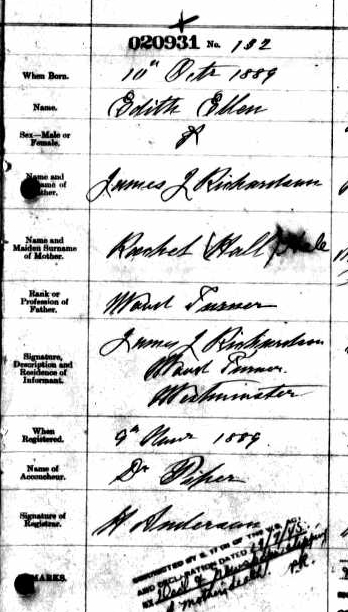 020931 No. 132
When Born. 10th Octr 1889
Name. Edith Ellen
Sex—Male or Female. F
Name and of James J Richardson
Name and Maiden Surname of Mother. Rachel Hall
Rank or Profession of Father. Wood Turner
Signature, Description and Residence of Informant. James J Richardson
Wood Turner
Westminster
When Registered. 9th Novr 1889
Name of Accoucheur. Dr Piper
Signature of Registrar. H Anderson
AND DECLARATION DATED